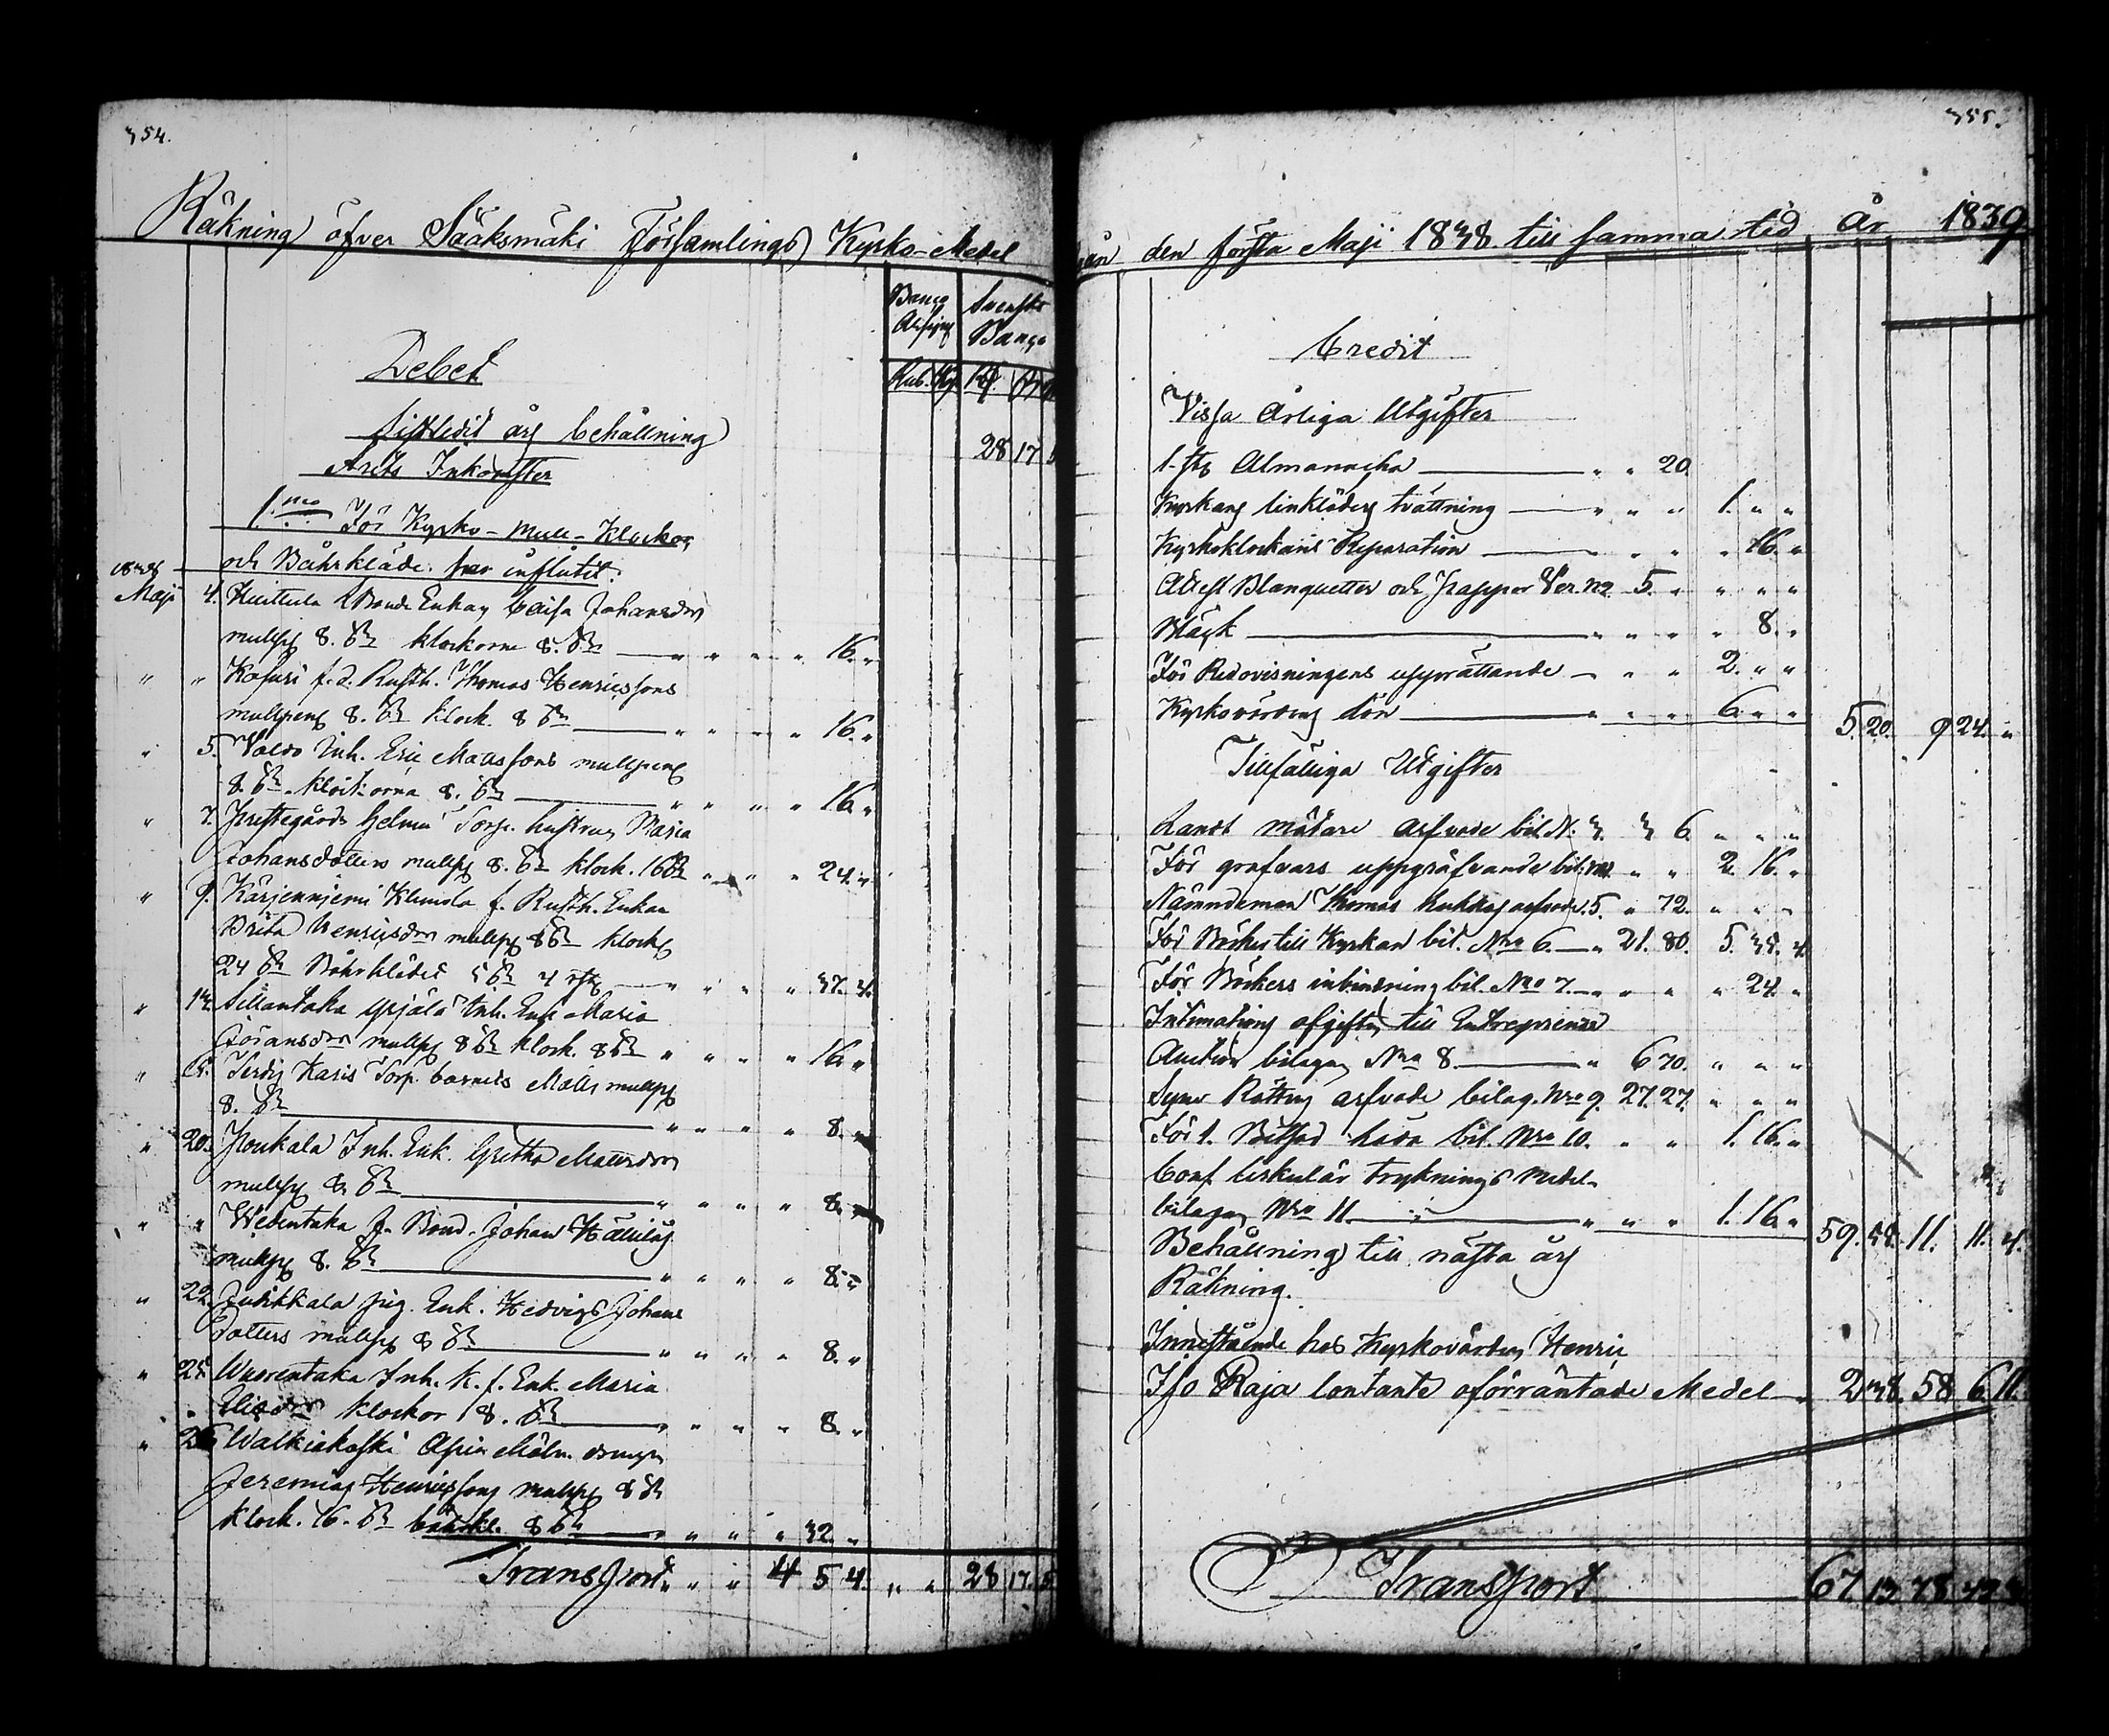 354.
Räkning öfver Sääksmäki Församlings Kyrko-Medel
Banco Svenska
Assign Banco
Debet
Rub. Kop. Rd. 
Sistledit års behållning 28 17 5
Årets Inkomster
1.mo För Kyrko-mull-Klockor
och Bårkläde har influtit.
1838
Maji 4. Huittula Bonde Enkan Caisa Johansdrs
mullpg 8. sk klockorne 8. sk " " " " 16. "
" " Kasuri f.d. Rusth. Thomas Henricssons
mullpeng 8. sk klock. 8 sk " " " " 16. "
" 5. Voldo Inh. Eric Mattssons mullpeng
8. sk klockorna 8. sk " " " " 16. "
" 7. Prestegårds Torp. hustrun Maja
Johansdotters mullpg 8. sk klock. 16 sk " " " 24. "
" 9. Kärjenniemi Klemola f. Rusth. Enkan
Brita Henricsdrs mullpg 8 sk klock
24 sk Bårklädet 5 sk 4 rst " " " " 37. 4.
" 14. Sillantaka Yrjälä Inh. Enk Maria
Göransdrs mullpg 8 sk klock. 8 sk " " " " 16. "
" Torp. barnets Matts mullpg
8. sk " " " " 8. "
" 20. Joukala Inh. Enk. Gretha Mattsdrs
mullpg 8. sk " " " " 8. "
" " Wedentaka f. Bond. Johan
mullpg 8. sk " " " " 8. "
" 22. Jutikkala pig. Enk. Hedvigs Johans
dotters mullpg 8 sk " " " " 8. "
" 25. Wuorentaka Inh. K. f. Enk. Maria
klockor 8. sk " " " " 8. "
" 26 Walkiakoski
Jeremias Henricssons mullpg 8 sk
klock. 16. sk bårkl. 8 sk " " " " 32. "
Transport " " " 4 5 4. " " 28 17. 5
355.
från den första Maji 1838 till samma tid År 1839
Credit
Vissa Årliga Utgifter
1. st Almanacka " " 20.
Kyrkans linkläders tvättning " " " 1. " "
Kyrkoklockans Reparation " " " " 16. "
Attest Blanquetter och Papper Ver. No 2. 5. " " " "
Bläck " " " " 8. "
För Redovisningens upprättande " " 2. " "
Kyrkovärdens lön " " " 6. " " 5. 20. 9 24. "
Tillfälliga Utgifter
Landt mätare arfvode bil. N: 3. 3 6. " " "
För grafvars uppgräfvande bil. " " 2. 16. "
Nämndeman Thomas arfvode. 5. " 72. " " "
För Böcker till Kyrkan bil. Nro 6. " 21. 80. 5. 35. 4.
För Böckers inbindning bil. Nro 7. " " " " 24. "
Intimations afgifter till Entreprenad
Auction bilagan Nro 8 " 6 70. " " "
Syne Rätters arfvode bilag. Nro 9. 27. 27. " " "
För 1. bil. Nro 10. " " 1. 16. "
Conf. Cirkulär tryknings Medel
bilagan Nro 11 " " " 1. 16. " 59. 48. 11. 11. 4.
Behållning till nästa års
Räkning.
Innestående hos Kyrkovärden Henric
Iso Raja contante oförräntade Medel 2 38. 58 6. 11.
Transport 67. 13 78 42 3